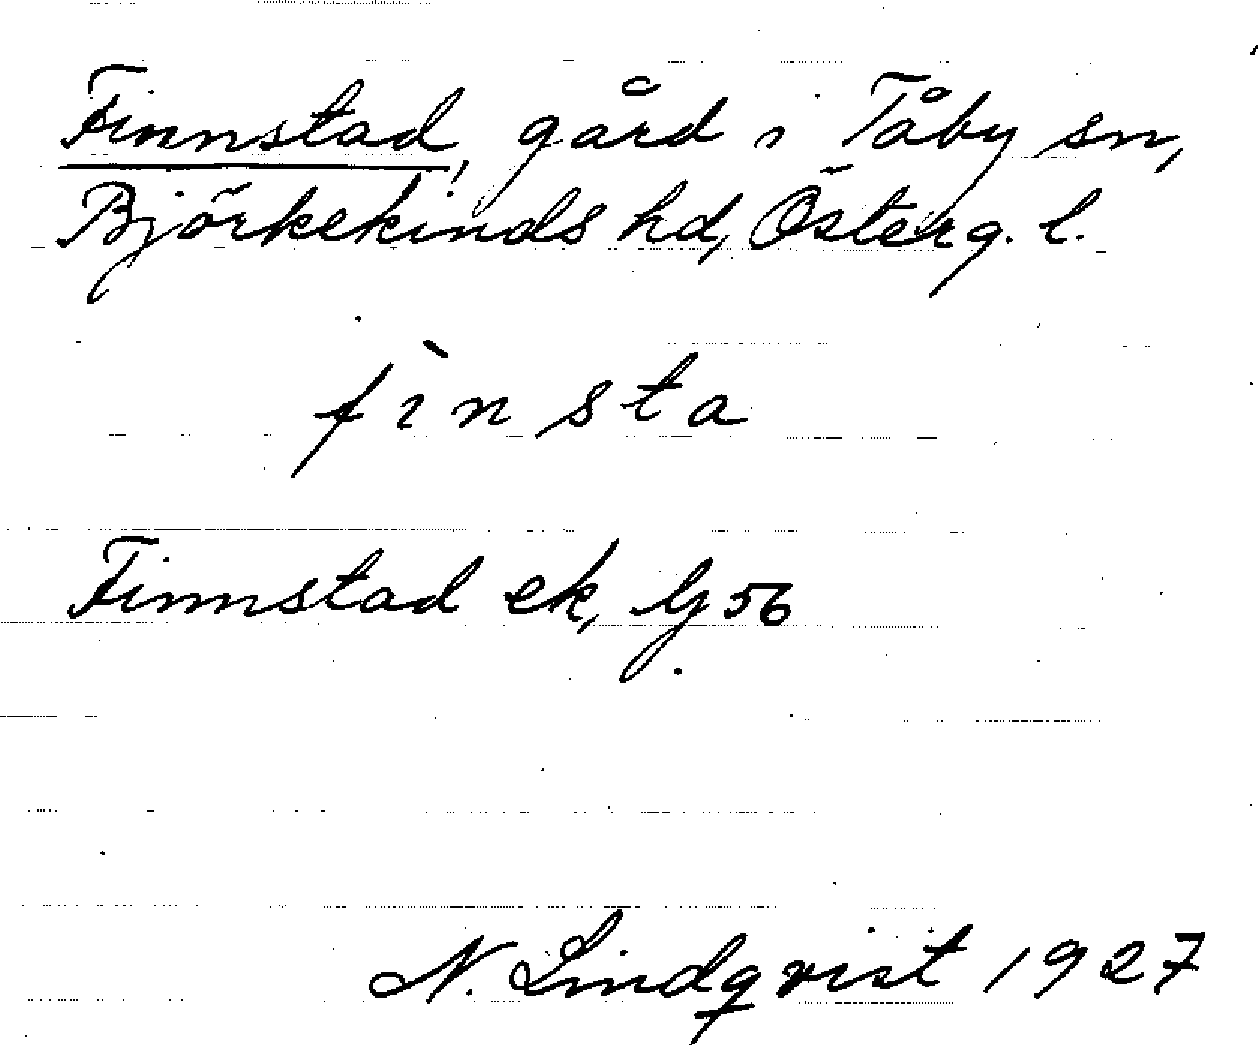 Finnstad, gård i Tåby sn,
Björkekinds hd, Österg. l.
fìnsta
Finnstad ek, bj 56
N. Lindqvist 1927